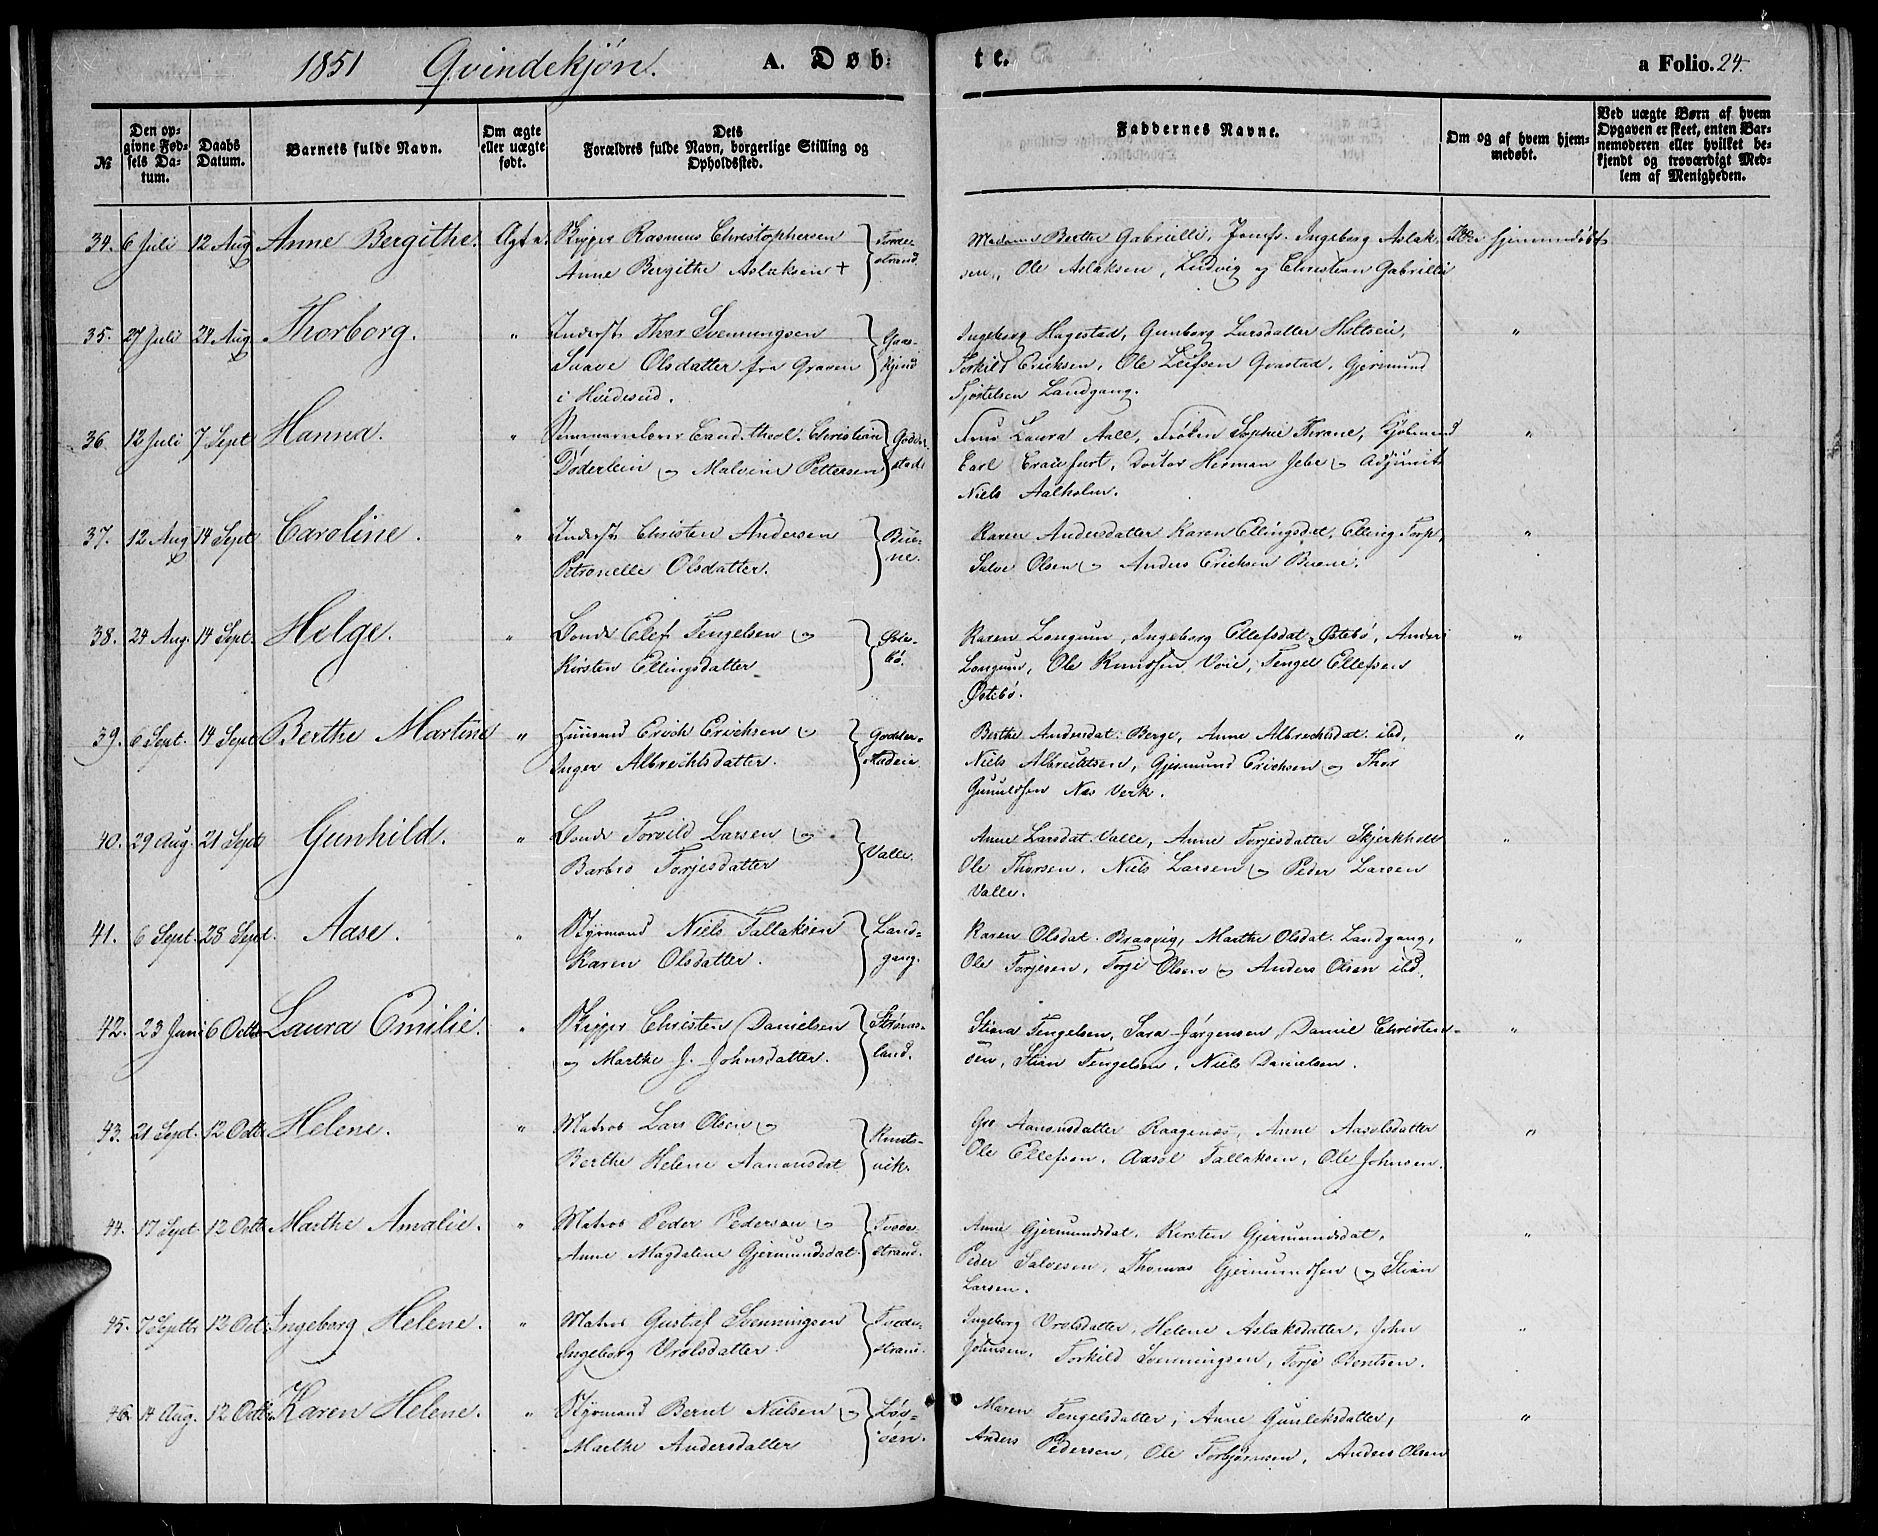 1851 Qvindekjön. A. Døbte. a Folio. 24.
№
Den opgivne Fødsels Datum.
Daabs Datum.
Barnets fulde Navn.
Om ægte eller uægte født.
Dets Forældres fulde Navn, borgerlige Stilling og Opholdssted.
Faddernes Navne.
Om og af hvem hjemmedøbt.
Ved uægte Børn af hvem Opgaven er skeet, enten Barnemoderen eller hvilket bekjendt og troværdigt Medlem af Menigheden.
34. 6 Juli 12 Aug Anne Bergithe. Ægte. Skipper Rasmus Christophersen Tvede- Madame Berthe Gabrielli, Jomfr. Ingeborg Aslak- Ikke hjemmedøbt
Anne Bergithe Aslaksen + strand. sen, Ole Aslaksen, Ludvig og Christian Gabrielli
35. 27 Juli 24 Aug Thorborg. " Inderst Thor Svenningsen Gaas- Ingeborg Hagestad, Gunborg Larsdatter Holtsei, "
Olsdatter fra Graven kjend Torkild Ericksen, Ole Leifsen Qvastad, Gjermund
i Hvidesed. Landgang.
36. 12 Juli 7 Sept Hanna. " Cand. theol. Christian Godder- Frue Laura Aall, Frøken Sophie Thrane, Kjøbmand "
Døderlein og Malvine Pettersen stad Carl Craufurt, Doctor Herman og Adjunct
Niels Aalholm.
37. 12 Aug 14 Sept Caroline. " Inderst Christen Andersen Bue- Karen Andersdatter Karen Ellingsdat, Elling Torp, "
Petronelle Olsdatter. ne. Salve Olsen og Anders Erichsen Buene.
38. 24 Aug. 14 Sept. Helge. " Bonde Elef Tengelsen og Øste- Karen Longum, Ingeborg Ellefsdat. Østebö, Anders "
Kirsten Ellingsdatter bö. Longum, Ole Knudsen Voie, Tengel Ellefsen
Østebö.
39. 6 Sept. 14 Sept Berthe Martine " Huusmd Erich Erichsen og Godder- Berthe Andersdat. Berge, Anne Albrechtsdat. ibd, "
Inger Albrechtsdatter. stadeie Niels Albrechtsen, Gjermund Erichsen og Thor
Gunuldsen Næs Verk.
40. 29 Aug. 21 Sept Gunhild. " Bonde Torvild Larsen og Valle. Anne Larsdat. Valle, Anne Torjesdatter Skjerkholt "
Barbro Torjesdatter Ole Thorsen, Niels Larsen og Peder Larsen
Valle.
41. 6 Sept. 28 Sept. Aase. " Styrmand Niels Tallaksen Land- Karen Olsdat. Braavig, Marthe Olsdat. Landgang, "
Karen Olsdatter. gang. Ole Torjesen, Torje Olsen og Anders Olsen ibd.
42. 23 Juni 6 Octb Laura Emilie. " Skipper Christen Danielsen Strøms- Stiana Tengelsen, Sara Jørgensen Daniel Christen- "
og Marthe J. Johnsdatter. land. sen, Stian Tengelsen, Niels Danielsen.
43. 21 Sept. 12 Octb Helene. " Matros Lars Olsen og Knuts- Gro Aanonsdatter Raagenæs, Anne Aasolsdatter "
Berthe Helene Aanonsdat vik. Ole Ellefsen, Aasol Tallaksen, Ole Johnsen.
44. 17 Sept. 12 Octb Marthe Amalie. " Matros Peder Pedersen og Tvede- Anne Gjermundsdat. Kirsten Gjermundsdat, "
Anne Magdalene Gjermundsdat. strand. Peder Salvesen, Thomas Gjermundsen og Stian
Larsen.
45. 7 Septb 12 Oct. Ingeborg Helene. " Matros Gustaf Svenningsen Tvede- Ingeborg Vrolsdatter, Helene Aslaksdatter, John "
Ingeborg Vrolsdatter. strand. Johnsen, Torkild Svenningsen, Torje Bentsen.
46. 14 Aug. 12 Octb Karen Helene. " Styrmand Bernt Nielsen og Løv- Maren Tengelsdatter, Anne Gunleksdatter, "
Marthe Andersdatter osen. Anders Pedersen, Ole Torbjørnsen, Anders Olsen